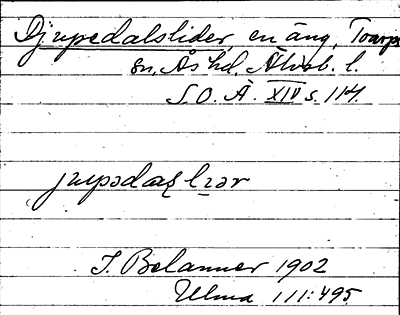 Djupedalslider, en äng, Toarps
sn, Ås hd. Älvsb. l.
S.O.Ä. XIV s. 114.
J. Bolanner 1902
Ulma 111:495